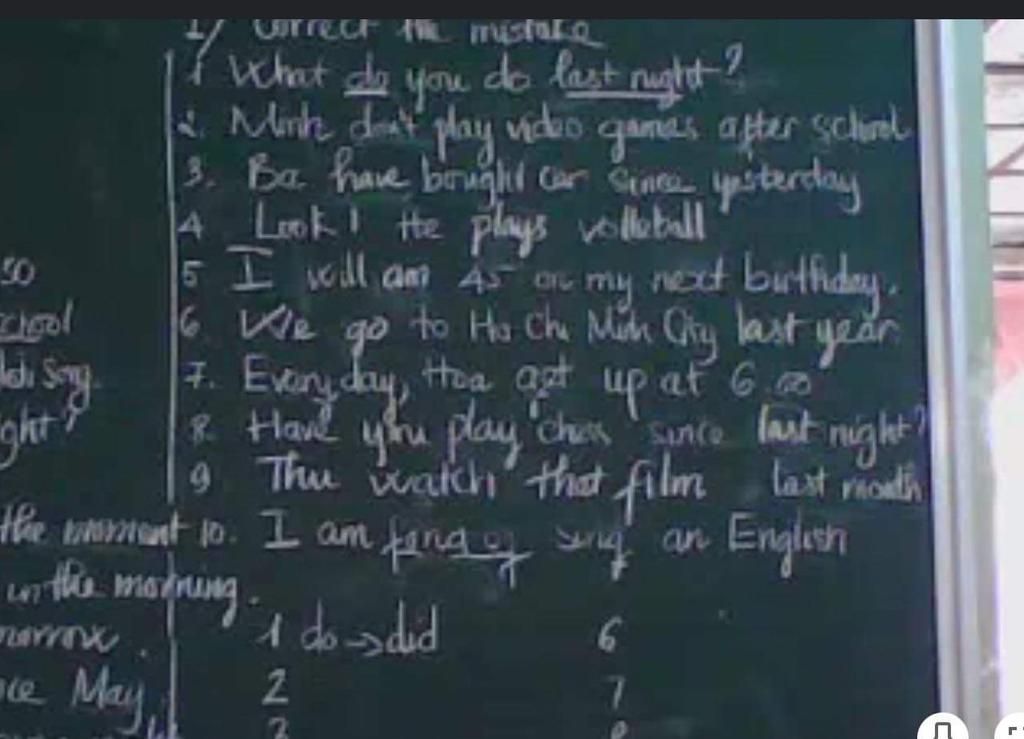 1/ Correct the mistake
1 What do you do last night?
2. Minh don't play video games after school
3. Ba have bought car since yesterday
4 Look! He plays volleball
50
5 I will am 45 on my next birthday.
school
6. We go to Ho Chi Minh City last year
Song.
7. Everyday, Hoa got up at 6.00
ght?
8. Have you play chess since last night?
9 Thu watch that film last month
the moment 10. I am fond of sing an English
in the morning.
morrow.
1 do → did 6
nce May
2 7
3 8